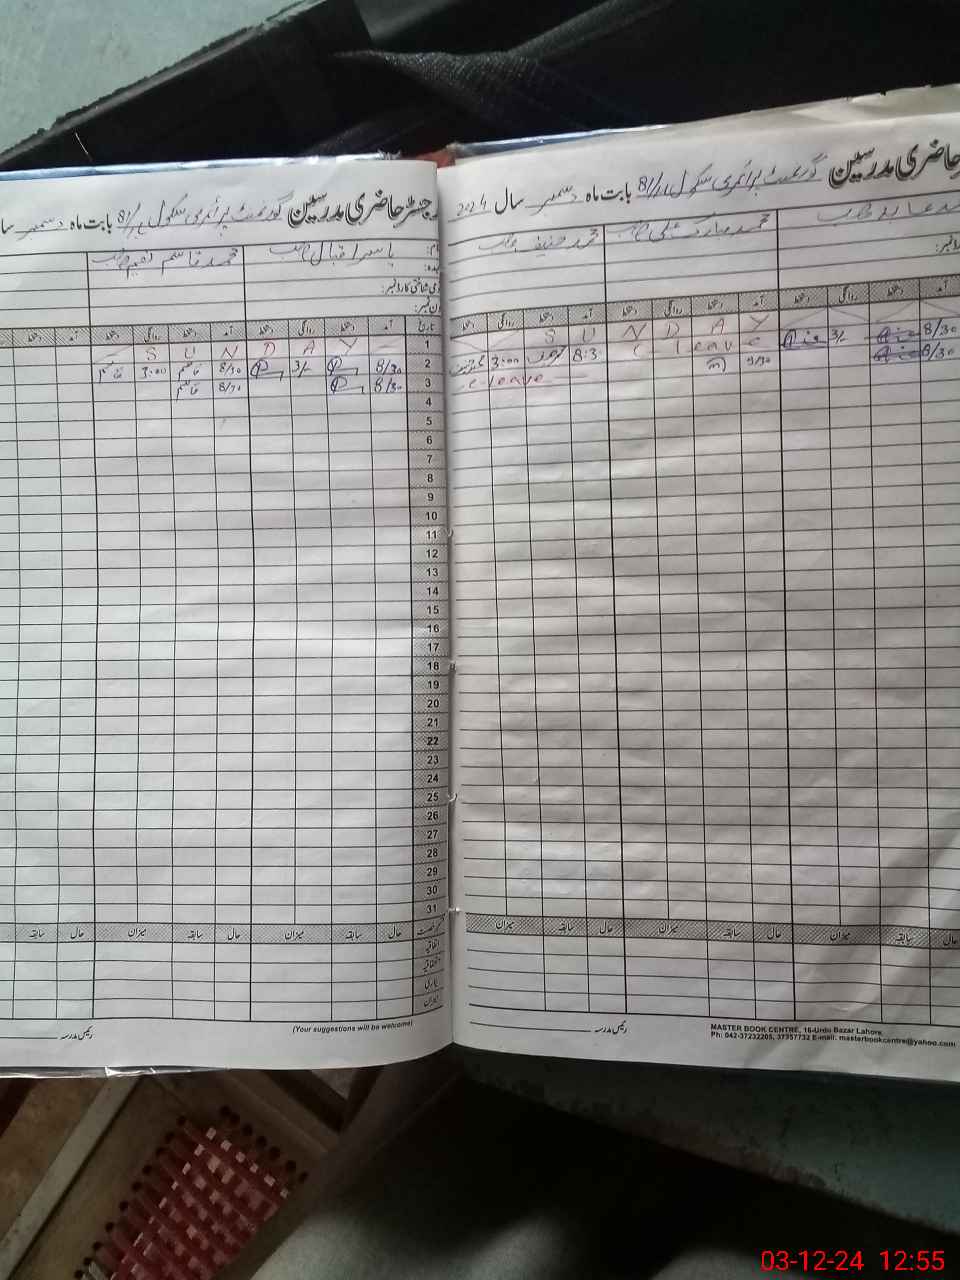 حاضری مدرسین گورنمنٹ پرائمری سکول 81/ بابت ماہ دسمبر سال 2024
محمد مبارک علی صاحب محمد حنیف صاحب
آمد دستخط روانگی دستخط آمد دستخط روانگی دستخط آمد دستخط روانگی دستخط
S U N D A Y
8/30 3/- C leave 8:3 3:00
8/30 9/30 C-leave
میزان سابقہ حال میزان سابقہ حال میزان سابقہ حال
رئیس مدرسہ
MASTER BOOK CENTRE, 16-Urdu Bazar Lahore
Ph: 042-37232205, 37357732 E-mail: masterbookcentre@yahoo.com
رجسٹر حاضری مدرسین گورنمنٹ پرائمری سکول 81/ بابت ماہ دسمبر
نام: یاسر اقبال صاحب محمد قاسم نعیم صاحب
عہدہ:
قومی شناختی کارڈ نمبر:
فون نمبر:
تاریخ آمد دستخط روانگی دستخط آمد دستخط روانگی دستخط آمد دستخط
1 S U N D A Y
2 8/30 3/- 8/30 قاسم 3:00 قاسم
3 8/30 8/30 قاسم
4
5
6
7
8
9
10
11
12
13
14
15
16
17
18
19
20
21
22
23
24
25
26
27
28
29
30
31
رخصت حال سابقہ میزان حال سابقہ میزان حال سابقہ
اتفاقیہ
بیماری
میزان
(Your suggestions will be welcome)
رئیس مدرسہ
03-12-24 12:55